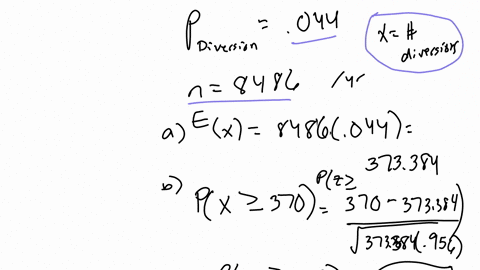 P Diversion = .044
x = # diversions
n = 8486 /yr
a) E(x) = 8486(.044) =
373.384
b) P(x ≥ 370) = P(z ≥ (370 - 373.384) / √(373.384(.956))